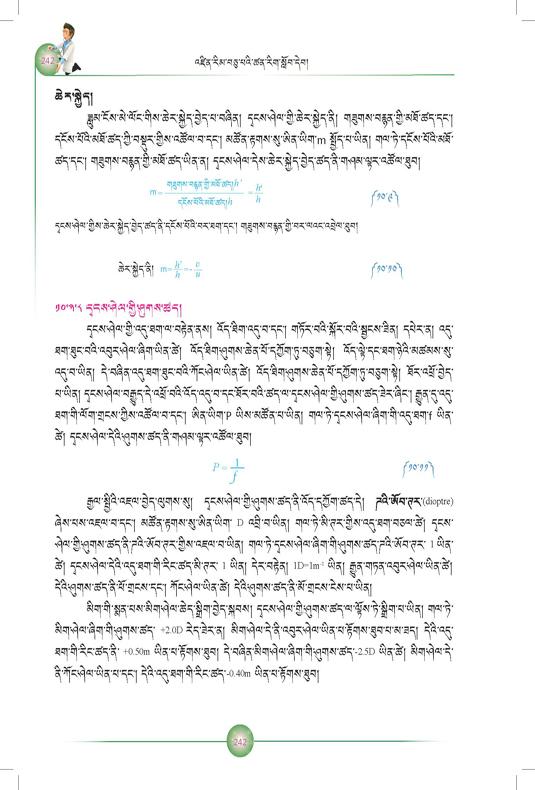 242
འཛིན་རིམ་བཅུ་པའི་ཚན་རིག་སློབ་དེབ།
ཆེར་སྐྱེད།
ཟླུམ་ངོས་མེ་ལོང་གིས་ཆེར་སྐྱེད་བྱེད་པ་བཞིན། དྭངས་ཤེལ་གྱི་ཆེར་སྐྱེད་ནི། གཟུགས་བརྙན་གྱི་མཐོ་ཚད་དང་།
དངོས་པོའི་མཐོ་ཚད་ཀྱི་བསྡུར་གྱིས་འཚོལ་བ་དང་། མཚོན་རྟགས་སུ་ཨིན་ཡིག་m སྤྲོད་པ་ཡིན། གལ་ཏེ་དངོས་པོའི་མཐོ་
ཚད་དང་། གཟུགས་བརྙན་གྱི་མཐོ་ཚད་ཡིན་ན། དྭངས་ཤེལ་དེས་ཆེར་སྐྱེད་བྱེད་ཚད་ནི་གཤམ་ལྟར་འཚོལ་ཐུབ།
m= གཟུགས་བརྙན་གྱི་མཐོ་ཚད།h' / དངོས་པོའི་མཐོ་ཚད།h = h' / h (༡༠.༩)
དྭངས་ཤེལ་གྱིས་ཆེར་སྐྱེད་བྱེད་ཚད་ནི་དངོས་པོའི་བར་ཐག་དང་། གཟུགས་བརྙན་གྱི་བར་ལའང་འབྲེལ་ཐུབ།
ཆེར་སྐྱེད་ནི། m= h' / h = - υ / u (༡༠.༡༠)
༡༠.༣.༨ དྭངས་ཤེལ་གྱི་ཤུགས་ཚད།
དྭངས་ཤེལ་གྱི་འདུ་ཐག་ལ་བརྟེན་ནས། འོད་ཐིག་འདུ་བ་དང་། གཏོར་བའི་སྐོར་བའི་སྦྱངས་ཟིན། དཔེར་ན། འདུ་
ཐག་ཐུང་བའི་འབུར་ཤེལ་ཞིག་ཡིན་ཚེ། འོད་ཐིག་ཤུགས་ཆེན་པོ་དཀྱོག་ཏུ་བཅུག་སྟེ། འོད་ལྟེ་དང་ཐག་ཉེའི་མཚམས་སུ་
འདུ་བ་ཡིན། དེ་བཞིན་འདུ་ཐག་ཐུང་བའི་ཀོང་ཤེལ་ཡིན་ཚེ། འོད་ཐིག་ཤུགས་ཆེན་པོ་དཀྱོག་ཏུ་བཅུག་སྟེ། ཐོར་འགྲོ་བྱེད་
པ་ཡིན། དྭངས་ཤེལ་བརྒྱུད་དེ་འགྲོ་བའི་འོད་འདུ་བ་དང་ཐོར་བའི་ཚད་ལ་དྭངས་ཤེལ་གྱི་ཤུགས་ཚད་ཟེར་ཞིང་། རྒྱུན་དུ་འདུ་
ཐག་གི་ལོག་གྲངས་ཀྱིས་འཚོལ་བ་དང་། ཨིན་ཡིག་P ཡིས་མཚོན་པ་ཡིན། གལ་ཏེ་དྭངས་ཤེལ་ཞིག་གི་འདུ་ཐག་f ཡིན་
ཚེ། དྭངས་ཤེལ་དེའི་ཤུགས་ཚད་ནི་གཤམ་ལྟར་འཚོལ་ཐུབ།
P = 1 / f (༡༠.༡༡)
རྒྱལ་སྤྱིའི་འཇལ་བྱེད་ལུགས་སུ། དྭངས་ཤེལ་གྱི་ཤུགས་ཚད་ནི་འོད་དཀྱོག་ཚད་དེ། ཌའི་ཨོབ་ཊར་(dioptre)
ཞེས་པས་འཇལ་བ་དང་། མཚོན་རྟགས་སུ་ཨིན་ཡིག་ D འབྲི་བ་ཡིན། གལ་ཏེ་མི་ཊར་གྱིས་འདུ་ཐག་བཅལ་ཚེ། དྭངས་
ཤེལ་གྱི་ཤུགས་ཚད་ནི་ཌའི་ཨོབ་ཊར་གྱིས་འཇལ་བ་ཡིན། གལ་ཏེ་དྭངས་ཤེལ་ཞིག་གི་ཤུགས་ཚད་ཌའི་ཨོབ་ཊར་ 1 ཡིན་
ཚེ། དྭངས་ཤེལ་དེའི་འདུ་ཐག་གི་རིང་ཚད་མི་ཊར་ 1 ཡིན། དེར་བརྟེན། 1D=1m⁻¹ ཡིན། རྒྱུན་གཏན་འབུར་ཤེལ་ཡིན་ཚེ།
དེའི་ཤུགས་ཚད་ནི་ཕོ་གྲངས་དང་། ཀོང་ཤེལ་ཡིན་ཚེ། དེའི་ཤུགས་ཚད་ནི་མོ་གྲངས་ངེས་པ་ཡིན།
མིག་གི་སྨན་པས་མིག་ཤེལ་ཆེད་སྒྲིག་བྱེད་སྐབས། དྭངས་ཤེལ་གྱི་ཤུགས་ཚད་ལ་ལྟོས་ཏེ་སྒྲིག་པ་ཡིན། གལ་ཏེ་
མིག་ཤེལ་ཞིག་གི་ཤུགས་ཚད་ +2.0D རེད་ཟེར་ན། མིག་ཤེལ་དེ་ནི་འབུར་ཤེལ་ཡིན་པ་རྟོགས་ཐུབ་པ་མ་ཟད། དེའི་འདུ་
ཐག་གི་རིང་ཚད་ནི་ +0.50m ཡིན་པ་རྟོགས་ཐུབ། དེ་བཞིན་མིག་ཤེལ་ཞིག་གི་ཤུགས་ཚད་-2.5D ཡིན་ཚེ། མིག་ཤེལ་དེ་
ནི་ཀོང་ཤེལ་ཡིན་པ་དང་། དེའི་འདུ་ཐག་གི་རིང་ཚད་-0.40m ཡིན་པ་རྟོགས་ཐུབ།
242